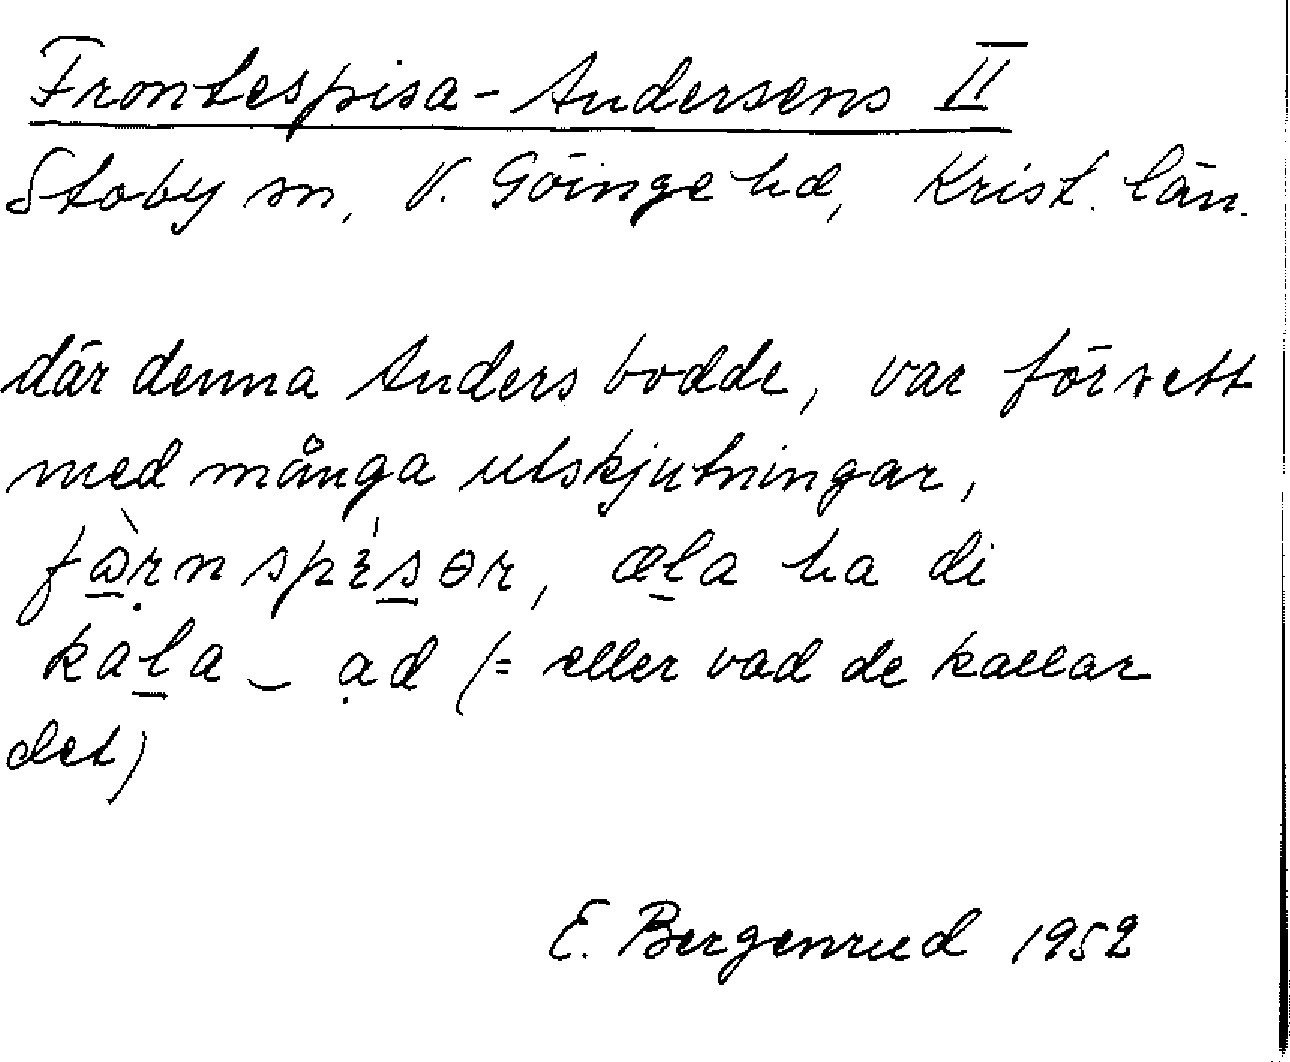 Frontespisa-Andersens II
Stoby sn, V. Göinge hd, Krist. län.
där denna Anders bodde, var försett
med många utskjutningar,
ha di
kala ad (= eller vad de kallar
det)
E. Bergenrud 1952